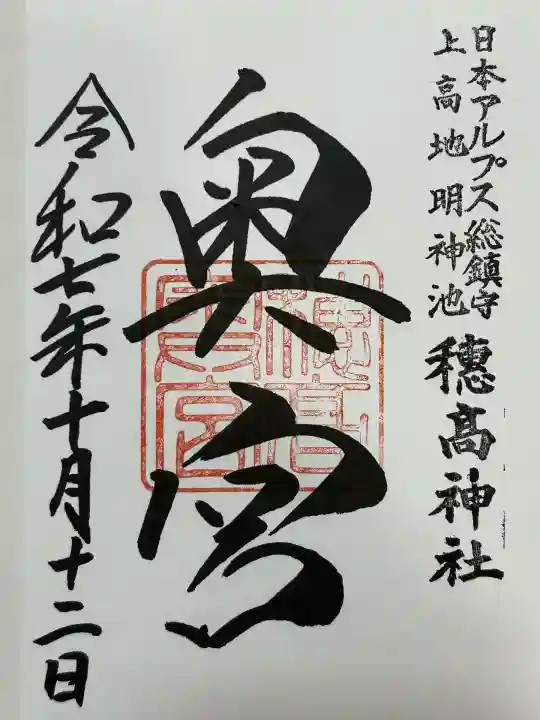 日本アルプス総鎮守
上高地明神池
穂髙神社
奥宮
穂高
奥宮
令和七年十月十二日